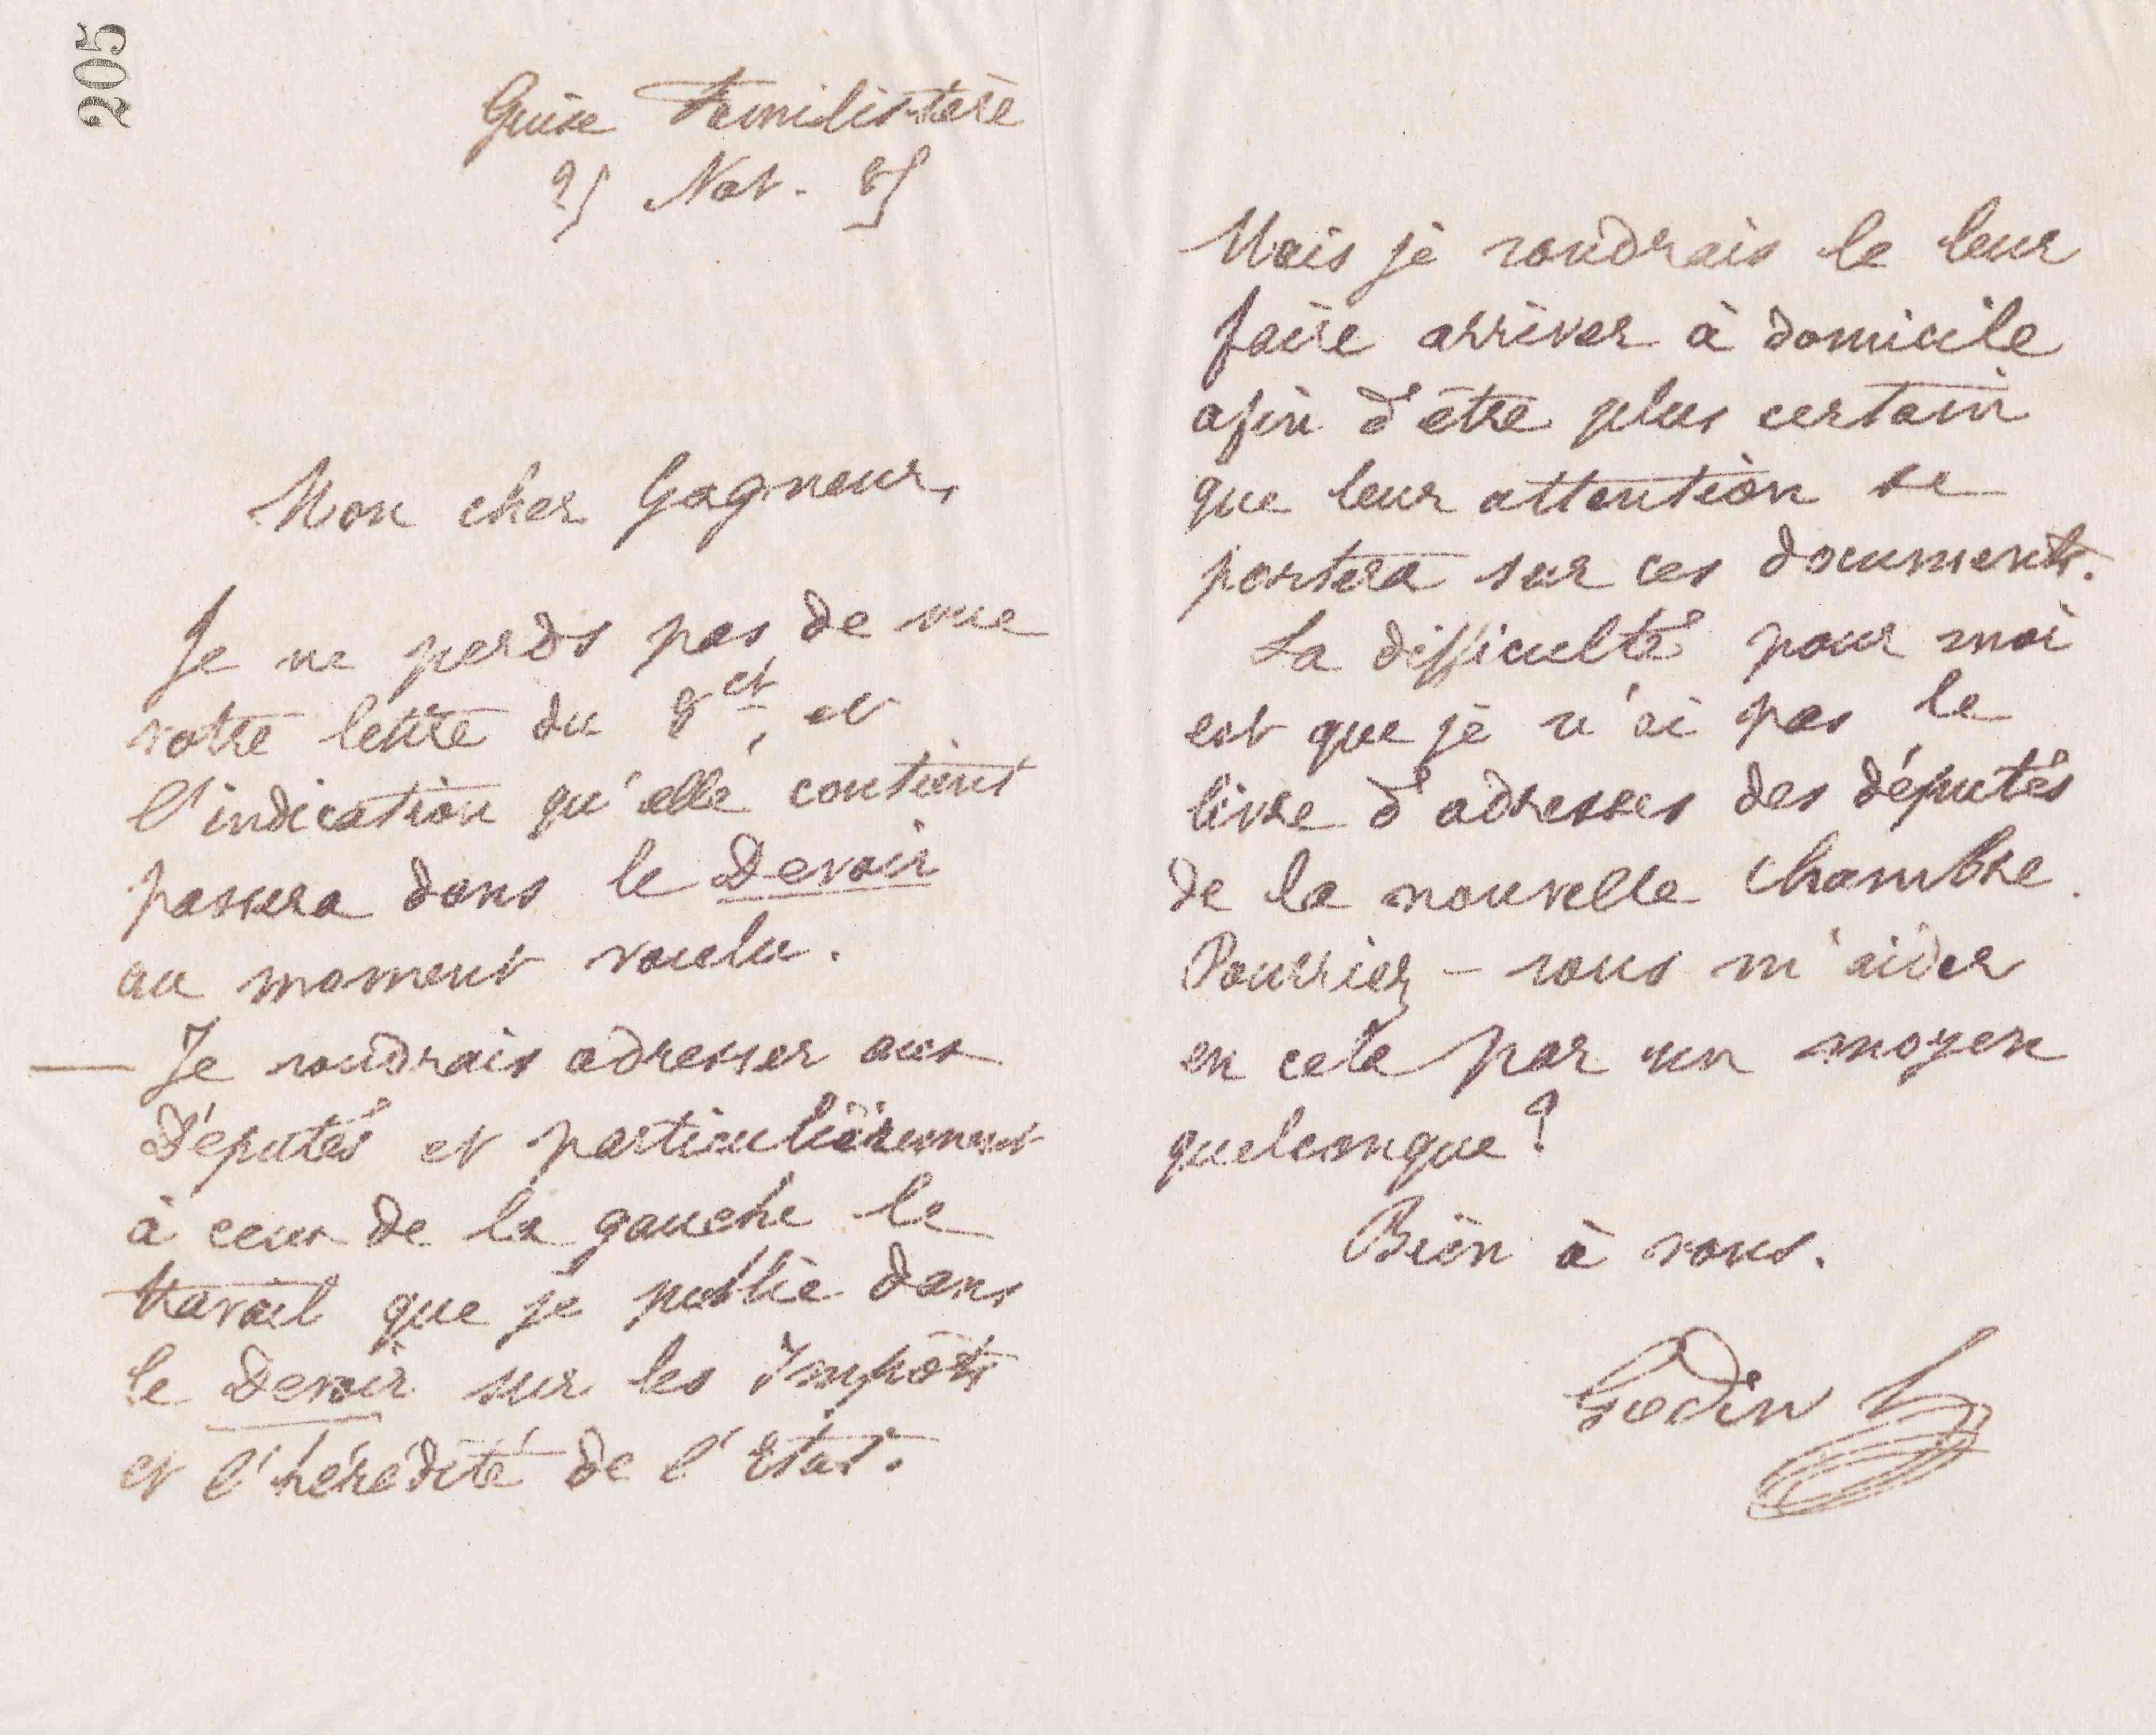 205
Guise Familistère
25 Nov. 85
Mon cher Gagneur,
Je ne perds pas de vue
votre lettre du 8 ct, et
l'indication qu'elle contient
passera dans le Devoir
au moment voulu.
— Je voudrais adresser aux
Députés et particulièrement
à ceux de la gauche le
travail que je publie dans
le Devoir sur les Impôts
et l'hérédité de l'Etat.
Mais je voudrais le leur
faire arriver à domicile
afin d'être plus certain
que leur attention se
portera sur ces documents.
La difficulté pour moi
est que je n'ai pas le
livre d'adresses des députés
de la nouvelle Chambre.
Pourriez-vous m'aider
en cela par un moyen
quelconque?
Bien à vous.
Godin